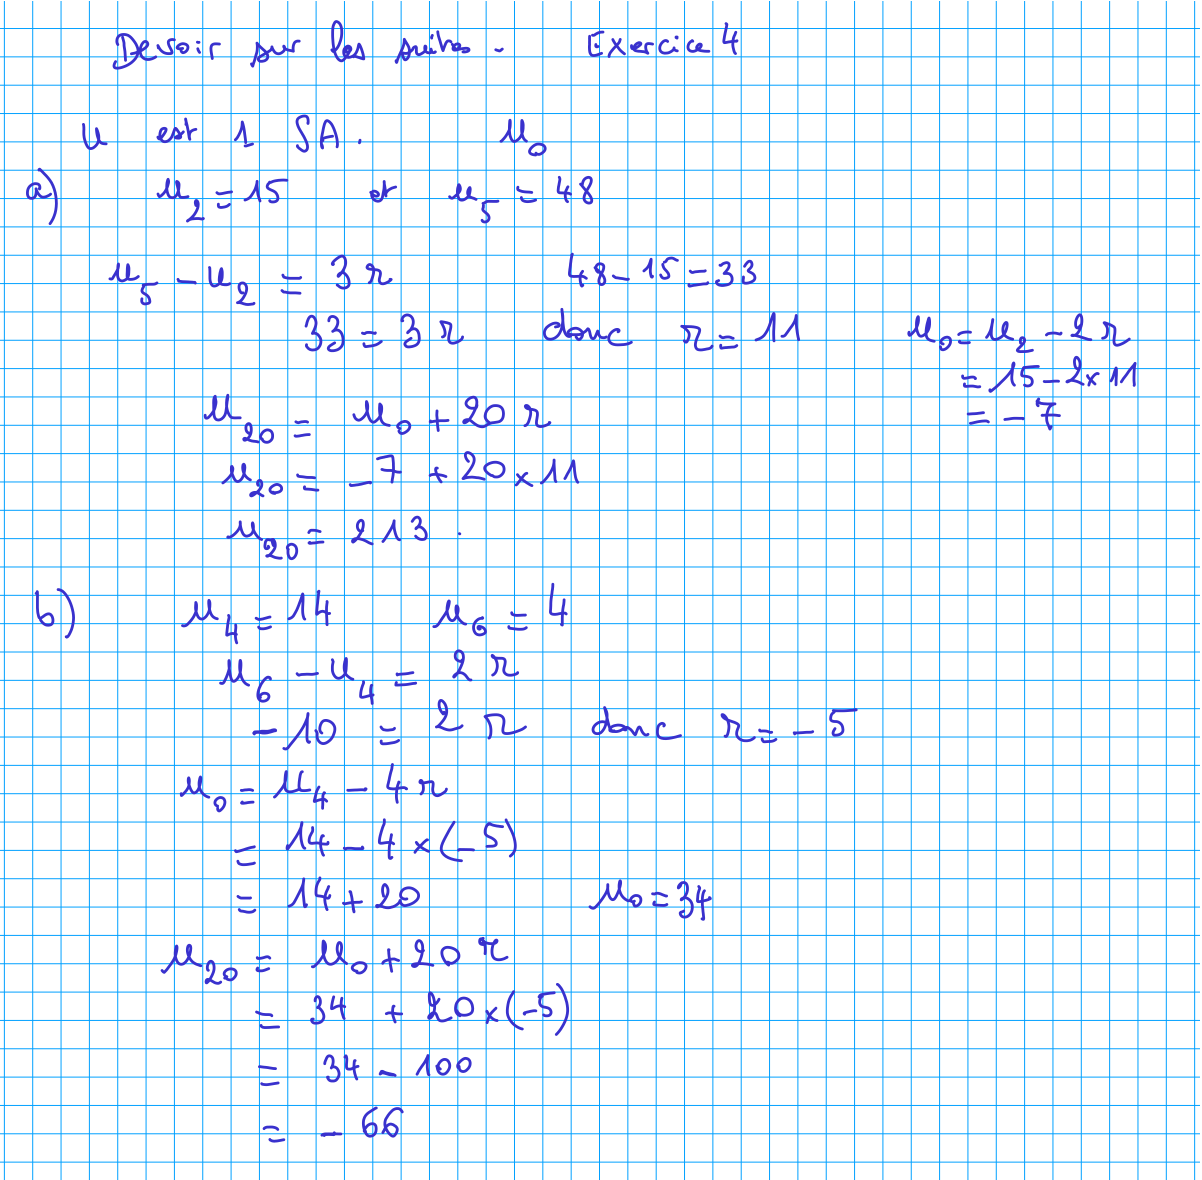 Devoir sur les suites. Exercice 4
U est 1 SA. u₀
a) u₂ = 15 et u₅ = 48
u₅ - u₂ = 3 r 48 - 15 = 33
33 = 3 r donc r = 11
u₀ = u₂ - 2 r
= 15 - 2 × 11
= - 7
u₂₀ = u₀ + 20 r
u₂₀ = - 7 + 20 × 11
u₂₀ = 213 .
b) u₄ = 14 u₆ = 4
u₆ - u₄ = 2 r
- 10 = 2 r donc r = - 5
u₀ = u₄ - 4 r
= 14 - 4 × (-5)
= 14 + 20 u₀ = 34
u₂₀ = u₀ + 20 r
= 34 + 20 × (-5)
= 34 - 100
= - 66